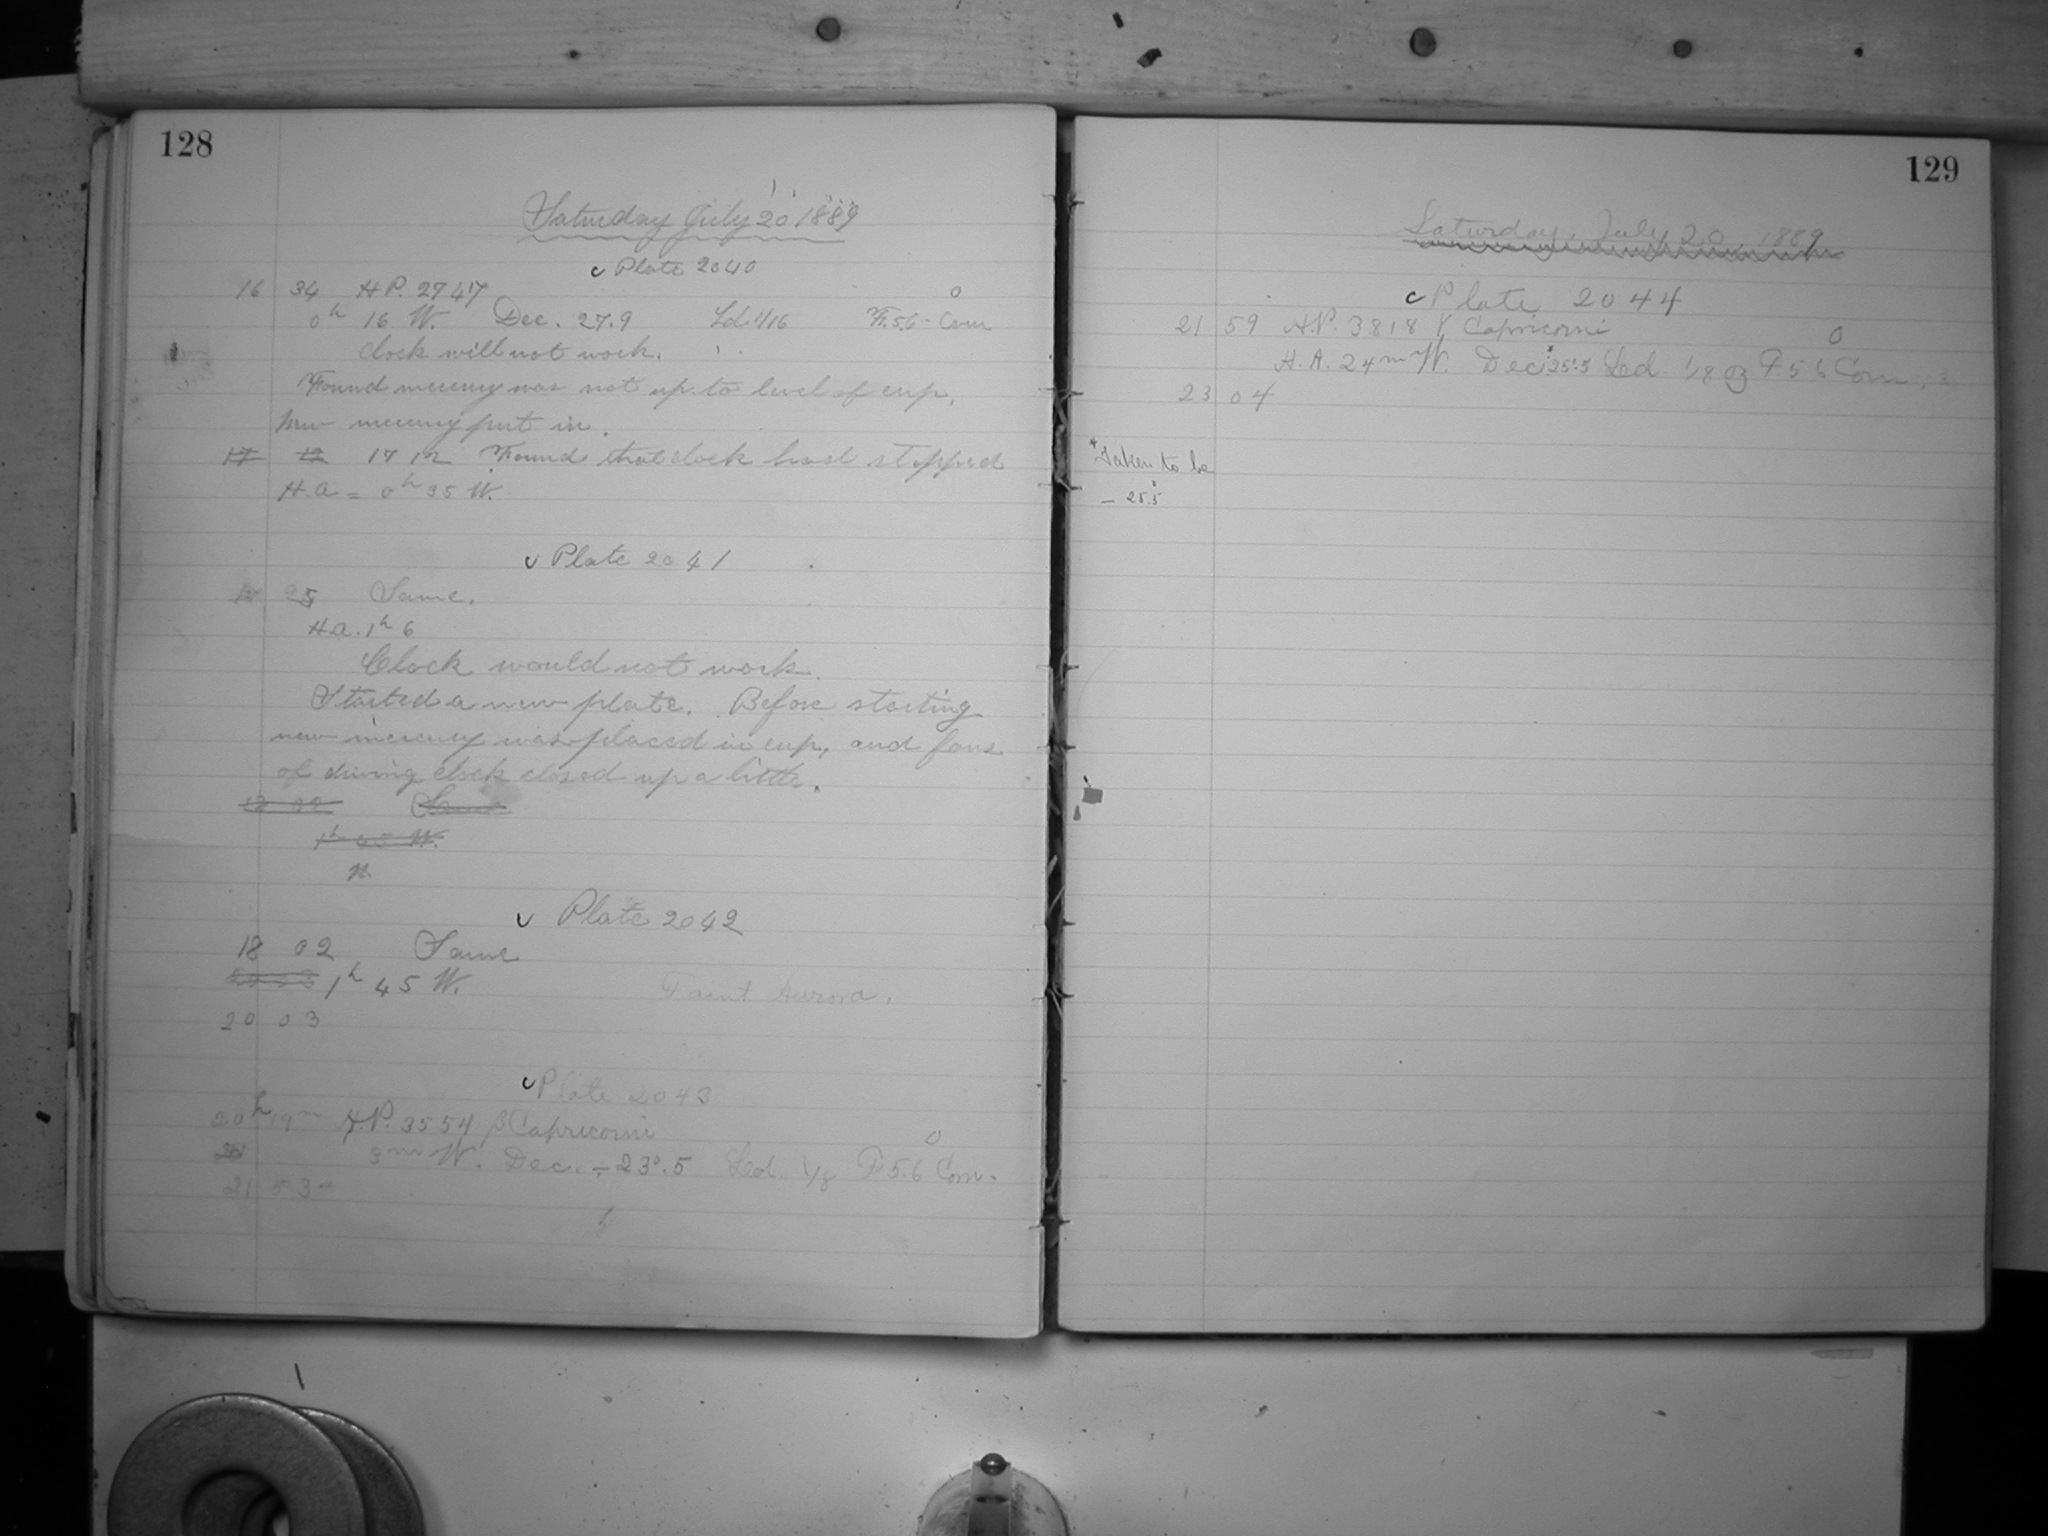 128
Saturday July 20 1889
c Plate 2040
16 34 H.P. 2747
0h 16 W. Dec. 27.9 Ld. 1/16 F. 5.6 Com
Clock will not work.
Found mercury was not up to level of cup.
New mercury put in.
17 12 17 12 Found that clock had stopped
H.a = 0h 35 W.
c Plate 2041
25 Same.
H.a. 1h 6
Clock would not work.
Started a new plate. Before starting
new mercury was placed in cup, and fans
of driving clock closed up a little.
Same
1h 45 W.
c Plate 2042
18 02 Same
1h 45 W. Faint Aurora.
20 03
c Plate 2043
20h 19m H.P. 3554 β Capricorni
3m W. Dec. - 23°.5 Led. 1/8 F 5.6 Com.
21 53
129
Saturday, July 20, 1889
c Plate 2044
21 59 H.P. 3818 γ Capricorni
H.A. 24m W. Dec* 25.5 Led. 1/8 oz F 5 6 Com.
23 04
* Taken to be
- 25°.5